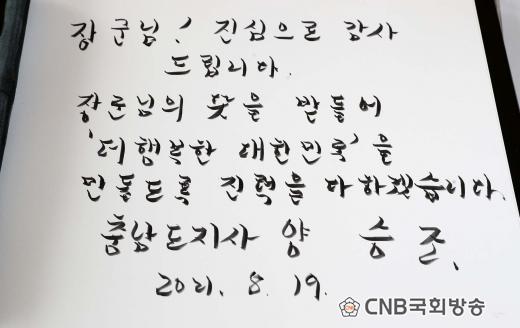 장군님! 진심으로 감사
드립니다.
장군님의 뜻을 받들어
'더 행복한 대한민국'을
만들도록 진력을 다하겠습니다.
충남도지사 양 승 조.
2021. 8. 19.
CNB국회방송